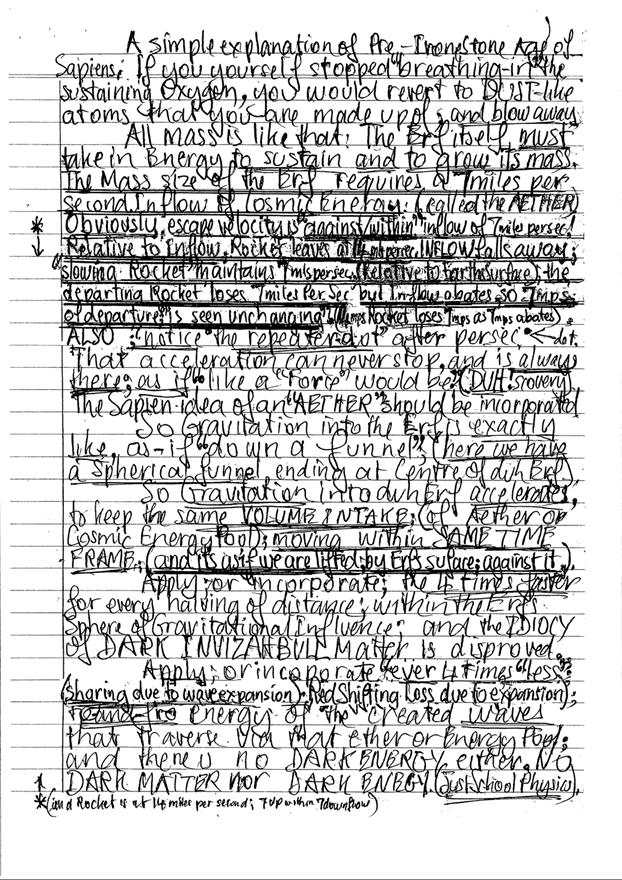 A simple explanation of Pre-Ironestone Age of
Sapiens: If you yourself stopped "breathing-in" the
sustaining Oxygen, you would revert to DUST-like
atoms that you are made up of; and blow away
All mass is like that: The Erf itself must
take in Energy to sustain and to grow its mass.
The Mass size of the Erf requires a 7miles per
second Inflow of Cosmic Energy. (called the AETHER)
* Obviously, escape velocity is "against/within" inflow of 7miles persec!
Relative to Inflow, Rocket leaves at 14 miles persec. INFLOW falls away;
slowing Rocket maintains 7mls persec. (Relative to Earth surface); the
departing Rocket loses 7miles Per Sec but Inflow abates so 7mps
of departure; is seen unchanging. Rocket loses 7mps as 7mps abates).
ALSO; "notice" the repeater dot after persec. ← dot.
That acceleration can never stop, and is always
there; as if "like a "Force" would be! (DUH!: )
The Sapien idea of an "AETHER" should be incorporated
So Gravitation into the Erf is exactly
like, as-if "down a funnel"; (here we have
a Spherical funnel ending at Centre of duh Erf)
So Gravitation into duh Erf accelerates;
to keep the same VOLUME INTAKE; (of Aether or
Cosmic Energy Pool); moving within SAME TIME
FRAME; (and its as if we are lifted; by Erfs suface; against it.)
Apply; or "incorporate; the 4 times faster
for every halving of distance; within the Erfs
Sphere of Gravitational Influence; and the IDIOCY
of DARK INVIZARBULL Matter is disproved.
Apply; or incoporate "ever 4 times "less";
(sharing due to wave expansion); Red Shifting Loss due to expansion);
to-and-fro energy of the "created waves"
that traverse via that ether or Energy Pool;
and there is no DARK ENERGY either. No
DARK MATTER nor DARK ENEGY. (Just School Physics).
* (and a Rocket is at 14 miles per second; 7 up within 7 downflow)